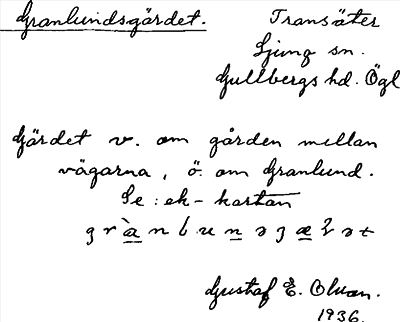 Granlundsgärdet. Transäter
Ljung sn.
Gullbergs hd. Ögl
Gärdet v. om gården mellan
vägarna, ö. om Granlund.
Se: ek-kartan
Gustaf E. Olson.
1936.